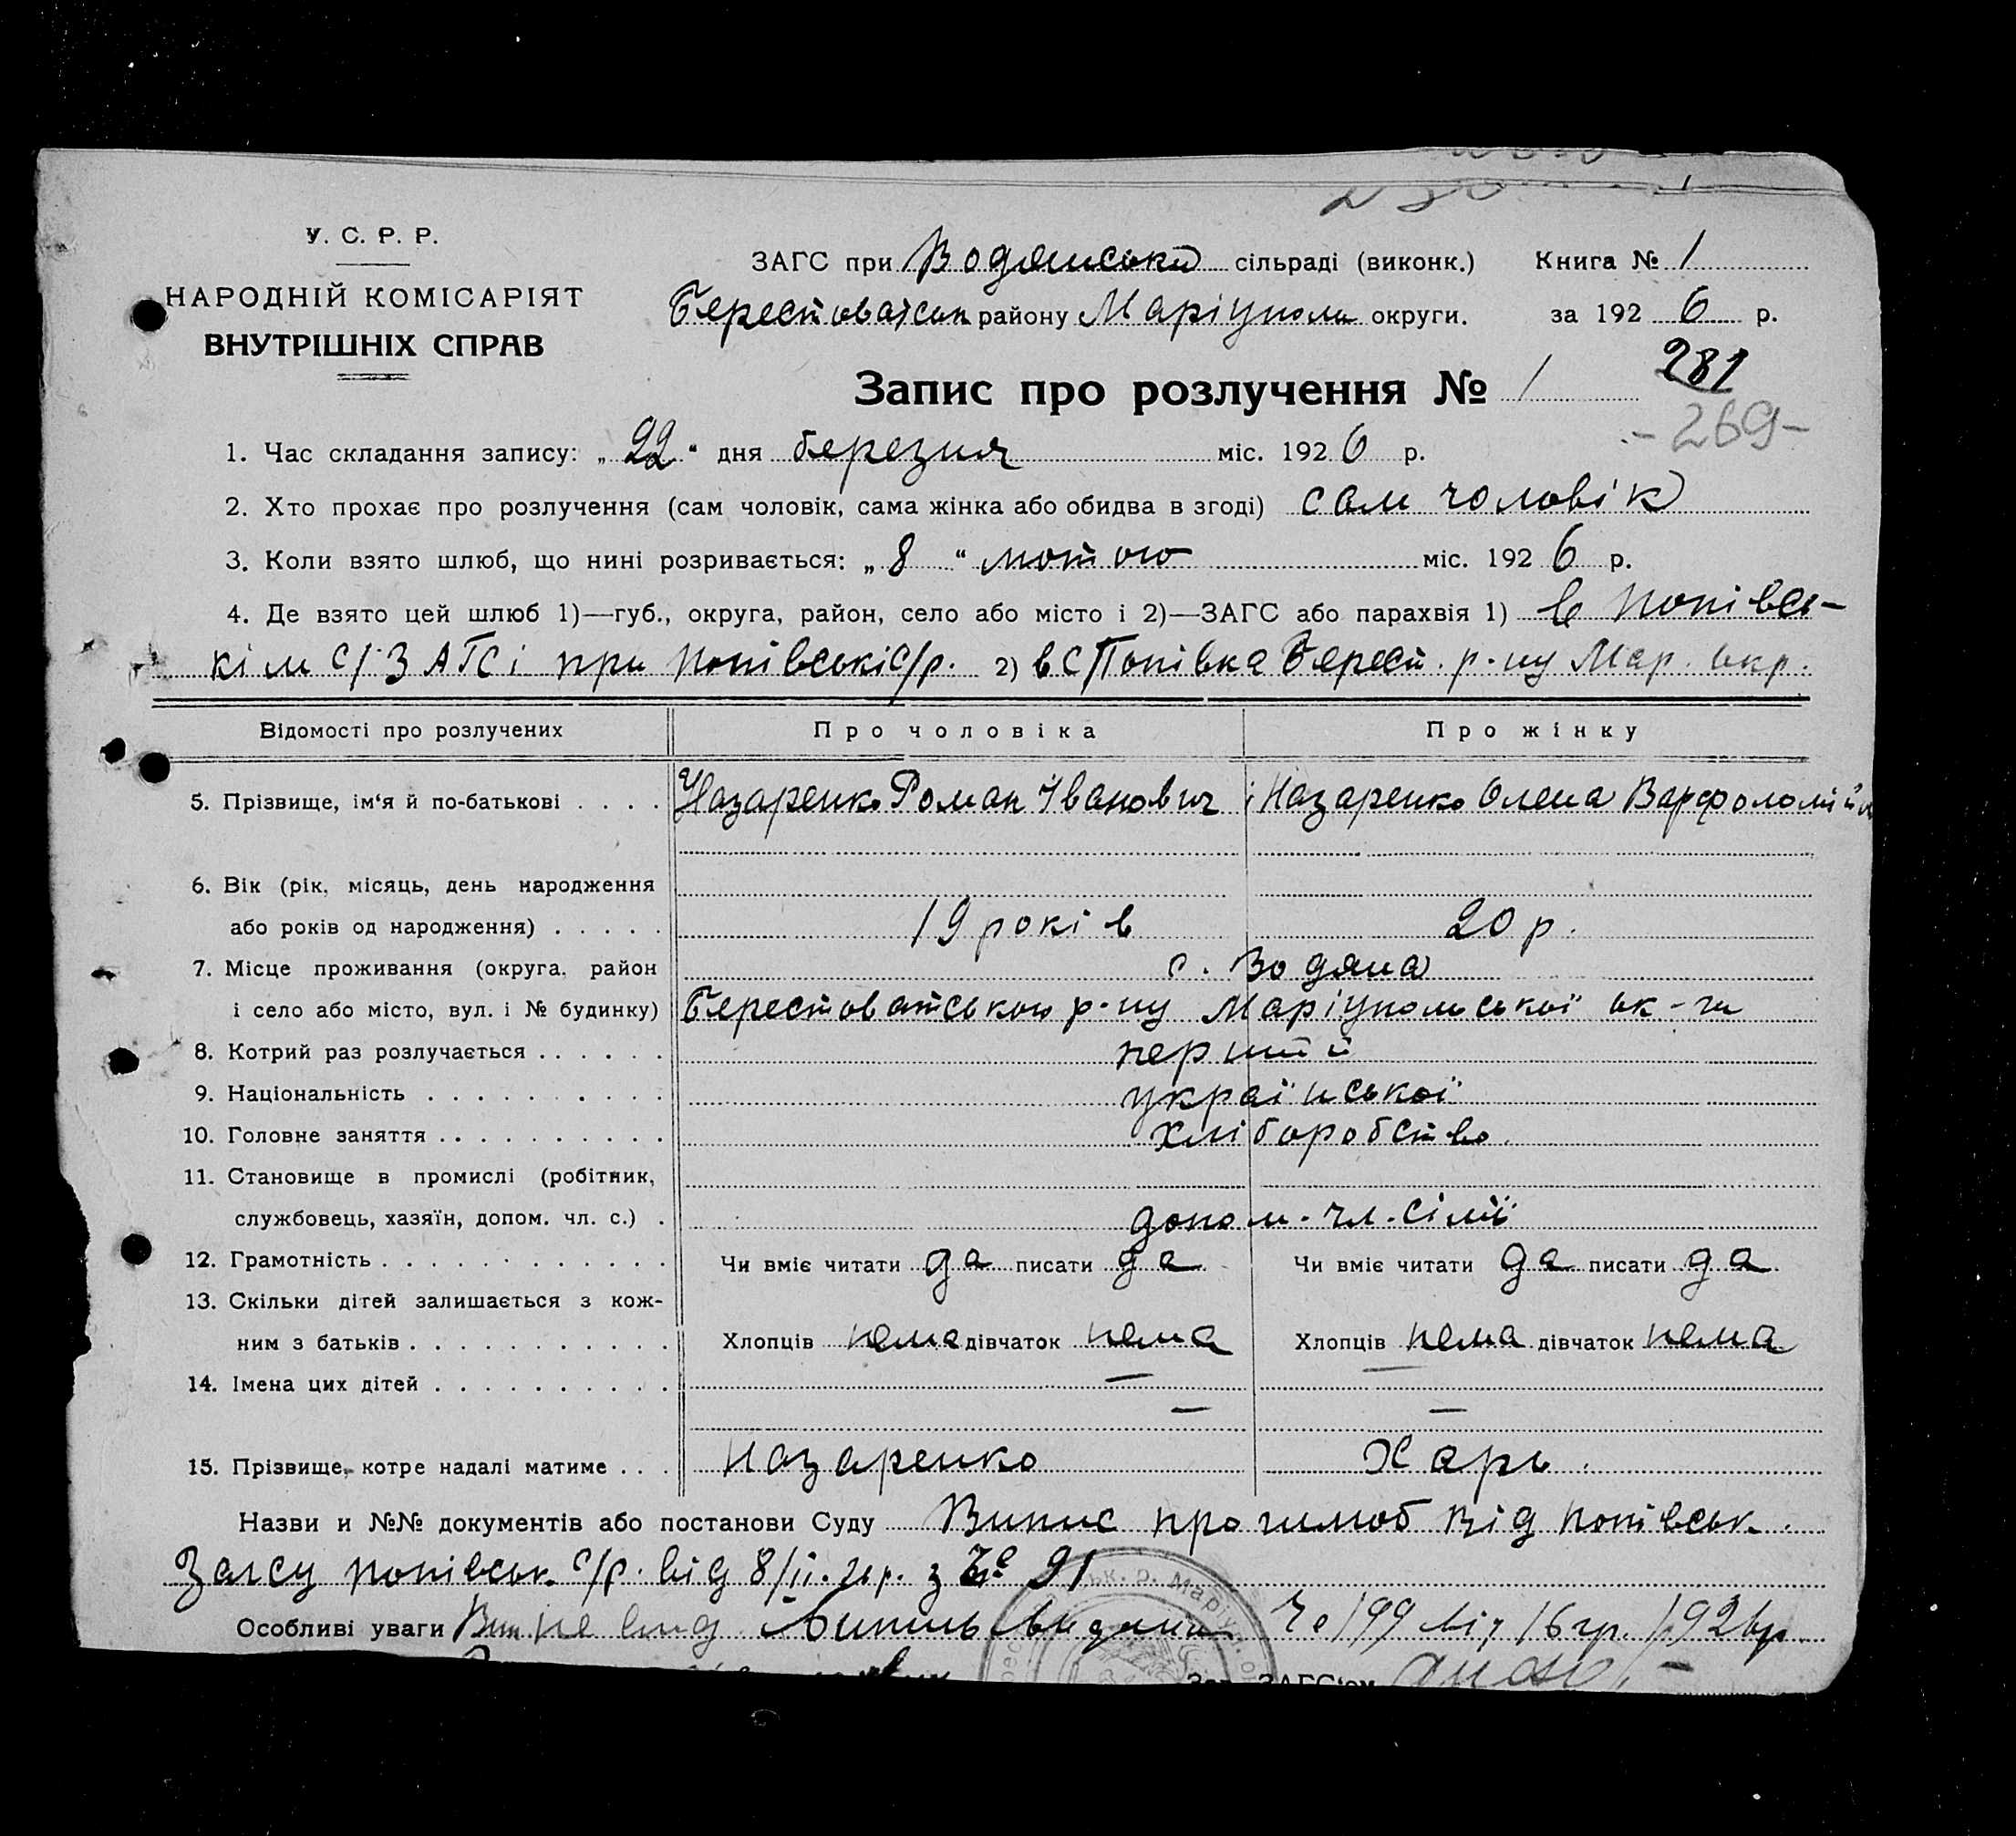 У. С. Р. Р.
НАРОДНІЙ КОМІСАРІЯТ
ВНУТРІШНІХ СПРАВ
ЗАГС при Водянській сільраді (виконк.) Книга № 1
Берестоватськ району Маріуполь округи. за 1926 р.
Запис про розлучення № 1
281
-269-
1. Час складання запису: „22“ дня березня міс. 1926 р.
2. Хто прохає про розлучення (сам чоловік, сама жінка або обидва в згоді) сам чоловік
3. Коли взято шлюб, що нині розривається: „8“ лютого міс. 1926 р.
4. Де взято цей шлюб 1)—губ., округа, район, село або місто і 2)—ЗАГС або парахвія 1) в Попівсь-
кім с/ЗАГСі при Попівські с/р. 2) в с/Попівка Берест. р-ну Мар. окр.
Відомості про розлучених Про чоловіка Про жінку
5. Прізвище, ім‘я й по-батькові . . . . Назаренко Роман Іванович Назаренко Олена
6. Вік (рік, місяць, день народження
або років од народження) . . . . . 19 років 20 р.
7. Місце проживання (округа, район с. Водяна
і село або місто, вул. і № будинку) Берестоватського р-ну Маріупольської ок-ги
8. Котрий раз розлучається . . . . . . перший
9. Національність . . . . . . . . . . української
10. Головне заняття . . . . . . . . . . хліборобство.
11. Становище в промислі (робітник,
службовець, хазяїн, допом. чл. с.) . допом. чл. сімії
12. Грамотність . . . . . . . . . . . . Чи вміє читати да писати да Чи вміє читати да писати да
13. Скільки дітей залишається з кож-
ним з батьків . . . . . . . . . . . Хлопців нема дівчаток нема Хлопців нема дівчаток нема
14. Імена цих дітей . . . . . . . . . . —
— —
15. Прізвище, котре надалі матиме . . . Назаренко Харь.
Назви и №№ документів або постанови Суду Випис про шлюб від Попівськ.
Загсу Попівськ. с/р. від 8/ІІ-26р. з № 91
Особливі уваги видана № 199 від 192 р
ЗАГС‘ом